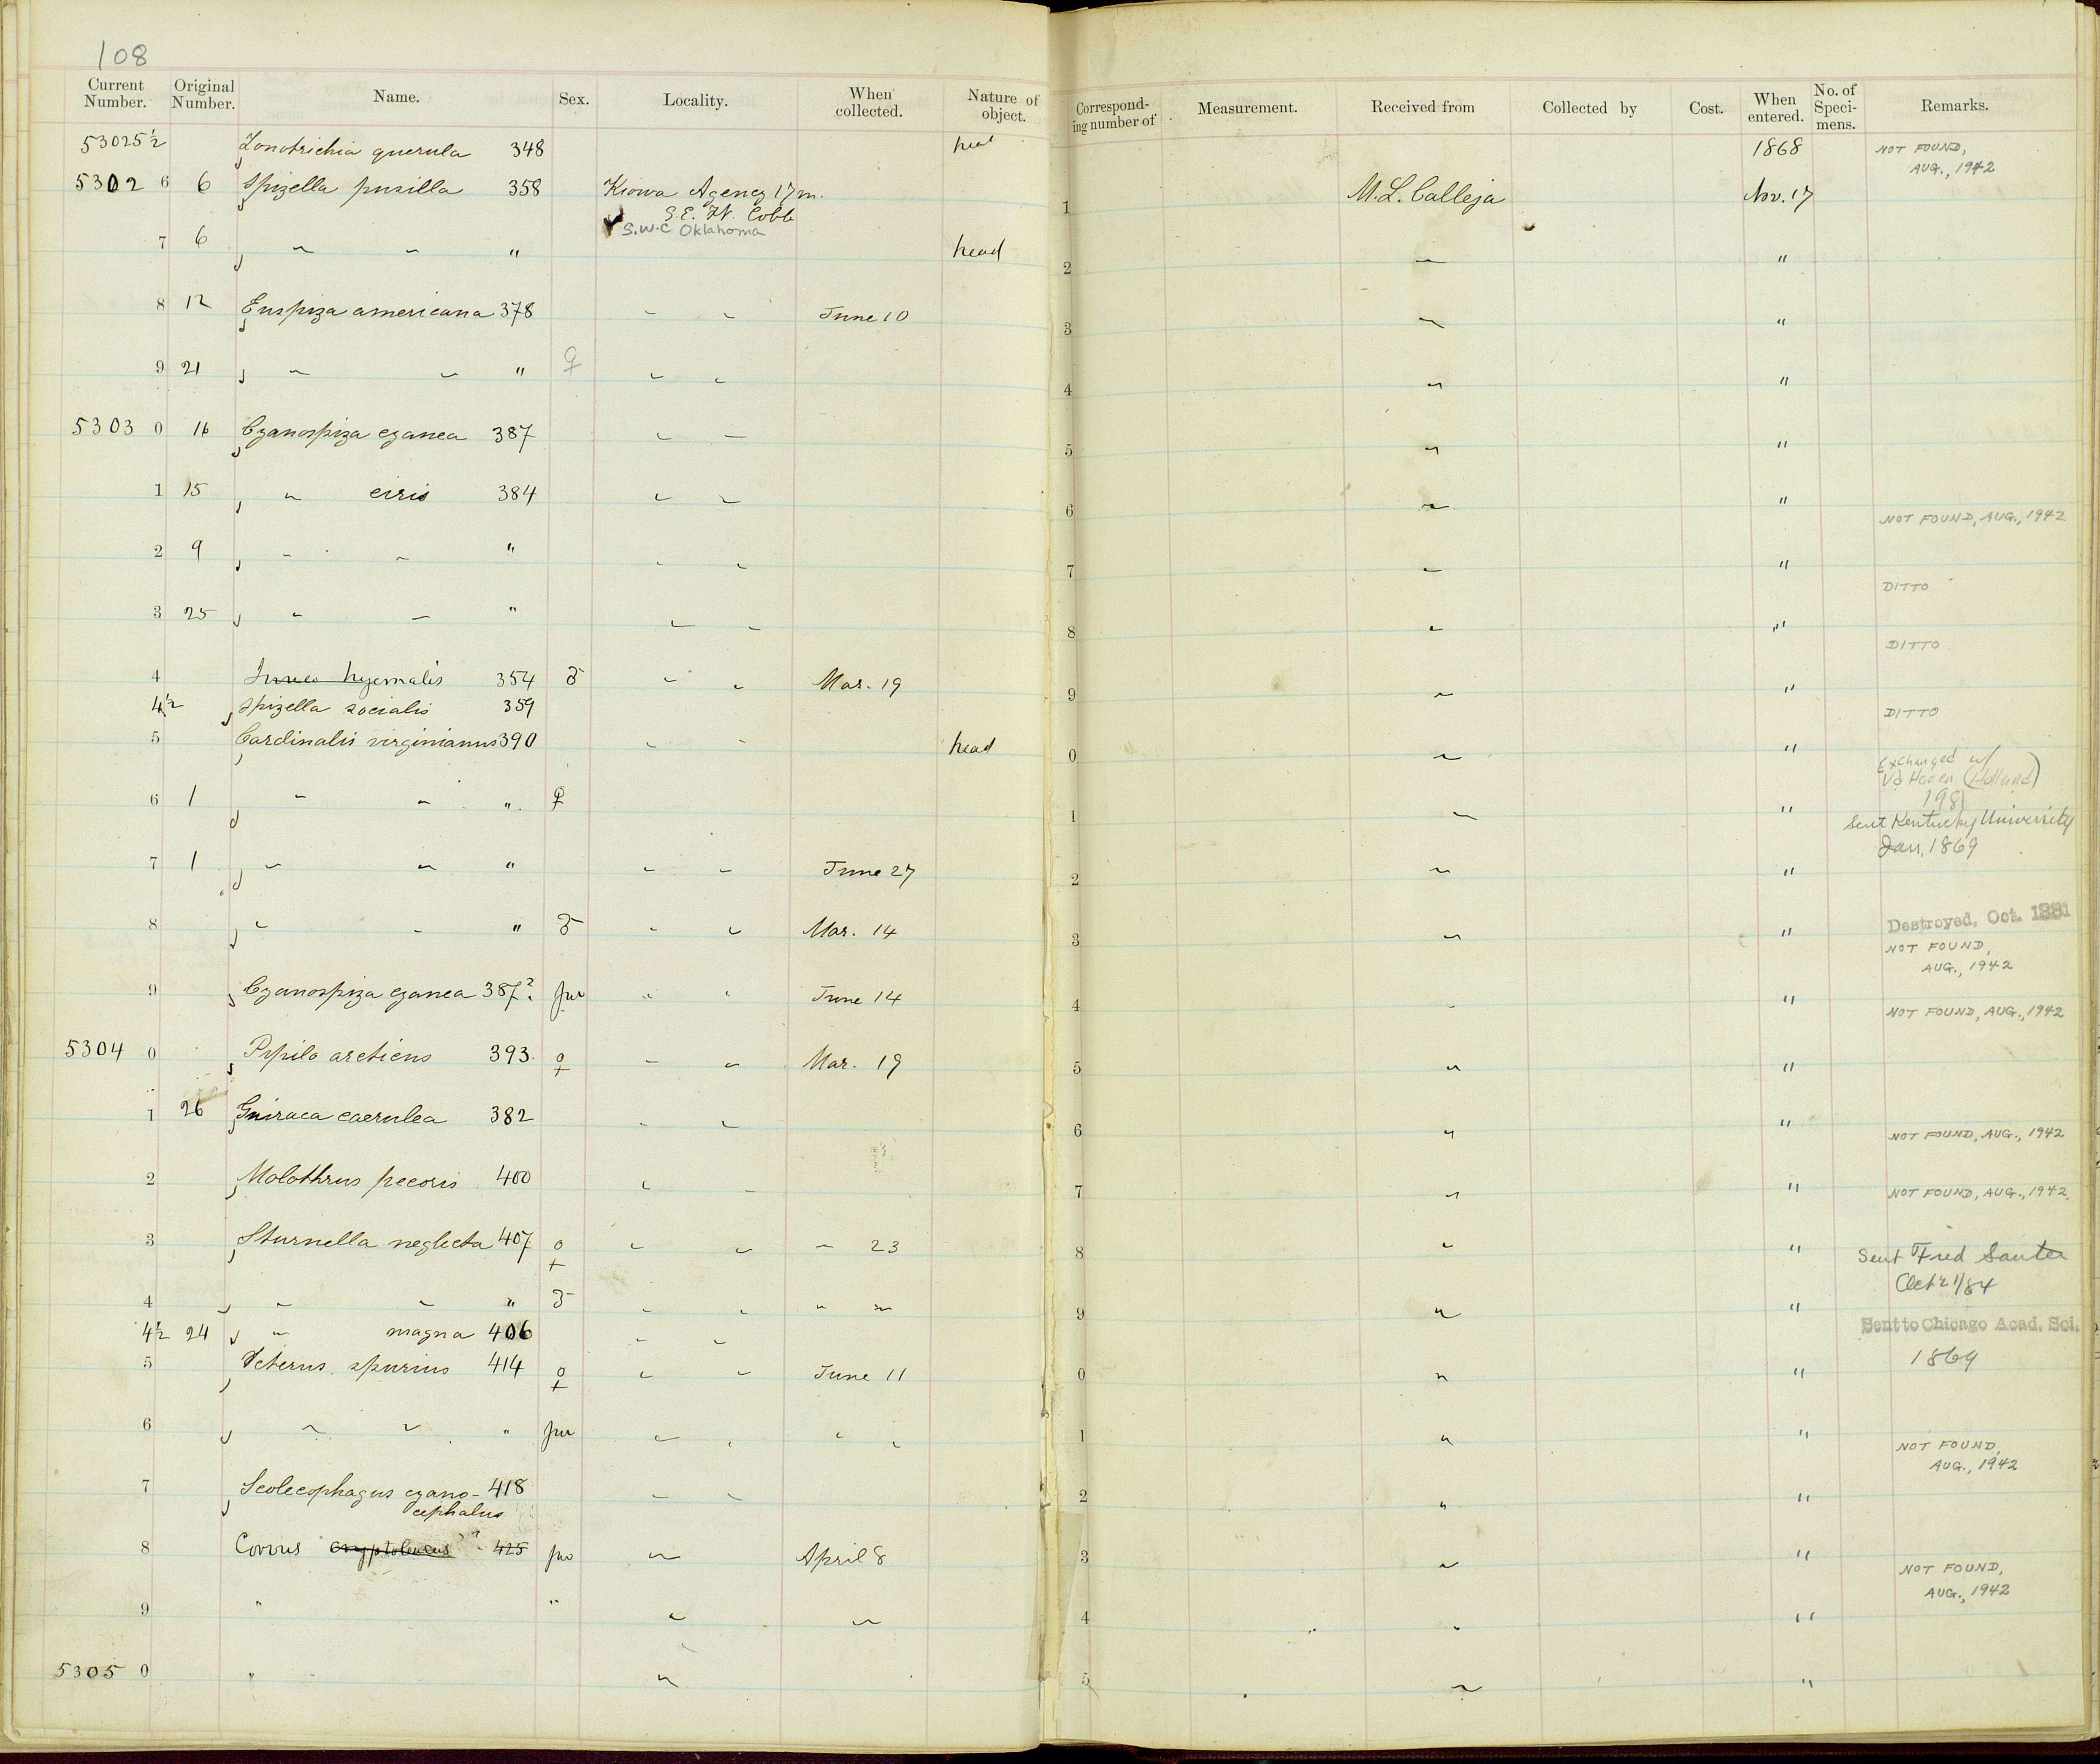 108
Current Number. Original Number. Name. Sex. Locality. When collected. Nature of object. Corresponding number of Measurement. Received from Collected by Cost. When entered. No. of Specimens. Remarks.
53025½ Zonotrichia querula 348 head 1868 NOT FOUND,
AUG., 1942
5302 6 6 Spizella pusilla 358 Kiowa Agency 17 m. 1 Nov. 17
S.E. Ft. Cobb
S.W.C Oklahoma
7 6 " " " head 2 " "
8 12 Euspiza americana 378 " " June 10 3 " "
9 21 " " " ♀ " " 4 " "
5303 0 16 Cyanospiza cyanea 387 " " 5 " "
1 15 " ciris 384 " " 6 " "
NOT FOUND, AUG., 1942
2 9 " " " " " 7 " "
DITTO
3 25 " " " " " 8 " "
DITTO
4 Junco hyemalis 354 ♂ " " Mar. 19 9 " "
4½ Spizella socialis 359 DITTO
5 Cardinalis virginianus 390 " " head 0 " "
Exchanged w/
Vd Hoeven (Holland)
198
6 1 " " " ♀ 1 " "
Sent Kentucky University
Jan, 1869
7 1 " " " " " June 27 2 " "
8 " " " ♂ " " Mar. 14 3 " " Destroyed, Oct. 1881
NOT FOUND,
AUG., 1942
9 Cyanospiza cyanea 387? juv " " June 14 4 " "
NOT FOUND, AUG., 1942
5304 0 Pipilo arcticus 393. ♀ " " Mar. 19 5 " "
1 26 Guiraca caerulea 382 " " 6 " "
NOT FOUND, AUG., 1942
2 Molothrus pecoris 400 " " 7 " "
NOT FOUND, AUG., 1942
3 Sturnella neglecta 407 ♀ " " " 23 8 " "
Sent Fred Sauter
Oct 21/84
4 " " " ♂ " " " " 9 " "
4½ 24 " magna 406 " " Sent to Chicago Acad. Sci.
1869
5 Icterus spurius 414 ♀ " " June 11 0 " "
6 " " " juv " " " " 1 " "
NOT FOUND,
AUG., 1942
7 Scolecophagus cyano- 418 " " 2 " "
cephalus
8 Corvus cryptoleucus ?? 425 juv " April 8 3 " "
NOT FOUND,
AUG., 1942
9 " " " " 4 " "
5305 0 " " 5 " "